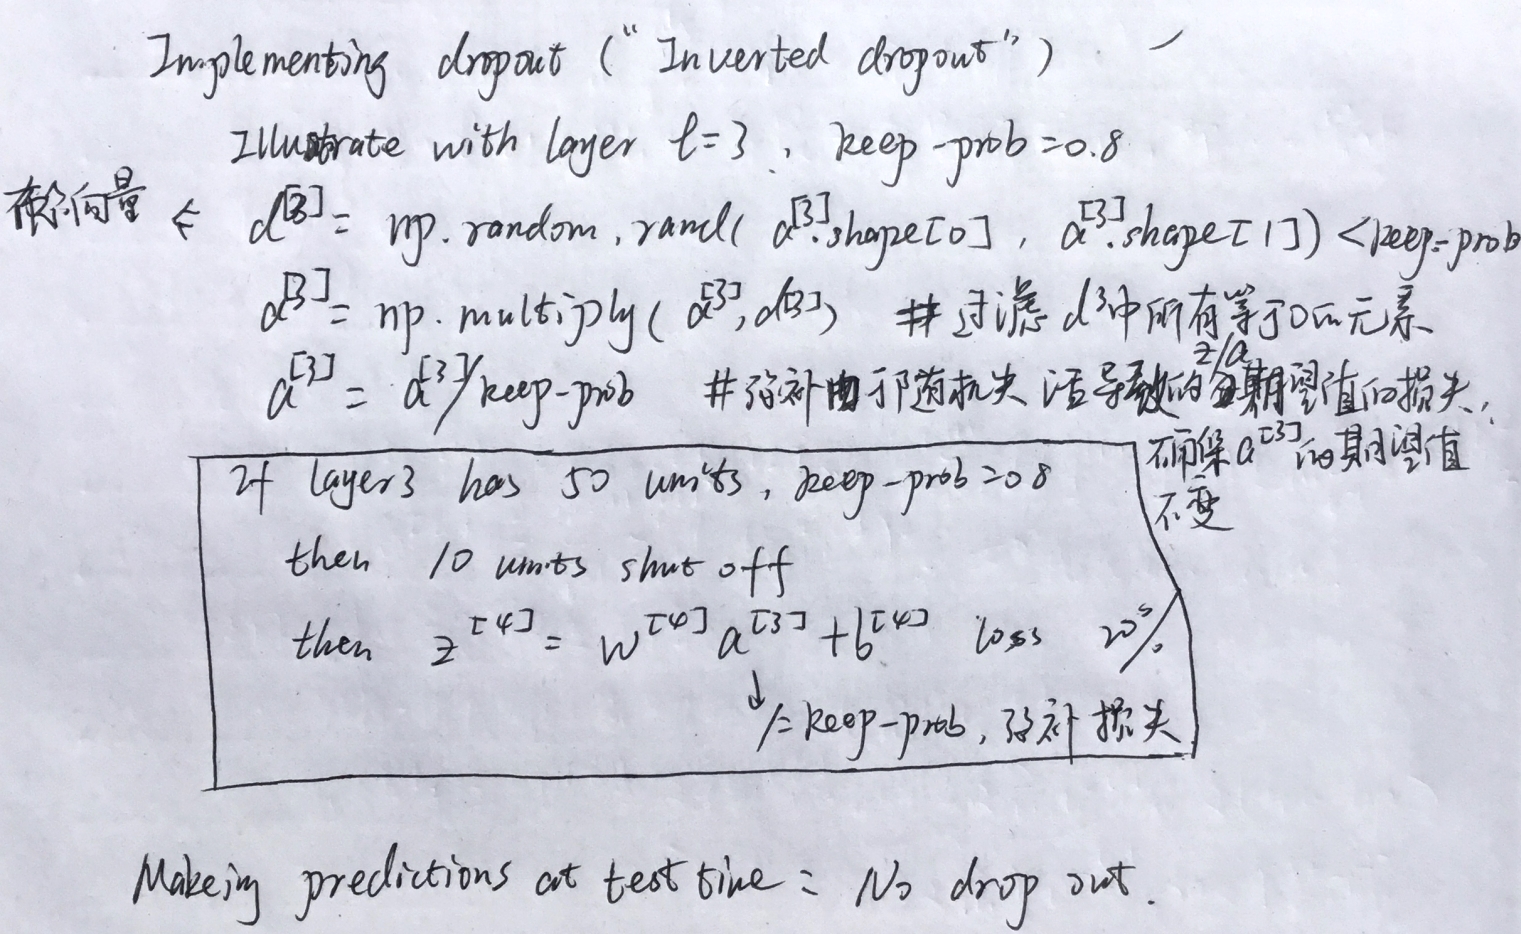 Implementing dropout ("Inverted dropout")
Illustrate with layer l=3, keep-prob=0.8
布尔向量 ⇐ d[3] = np.random.rand(a[3].shape[0], a[3].shape[1]) < keep-prob
a[3] = np.multiply(a[3], d[3]) # 过滤 d3中所有等于0的元素
a[3] = a[3]/keep-prob # 弥补由于随机失活导致的 z/a 期望值的损失,
不确保a[3]的期望值
不变
If layer3 has 50 units, keep-prob=0.8
then 10 units shut off
then z[4] = w[4] a[3] + b[4] loss 20%
↓
/= keep-prob, 弥补损失
Makeing predictions at test time = No drop out.